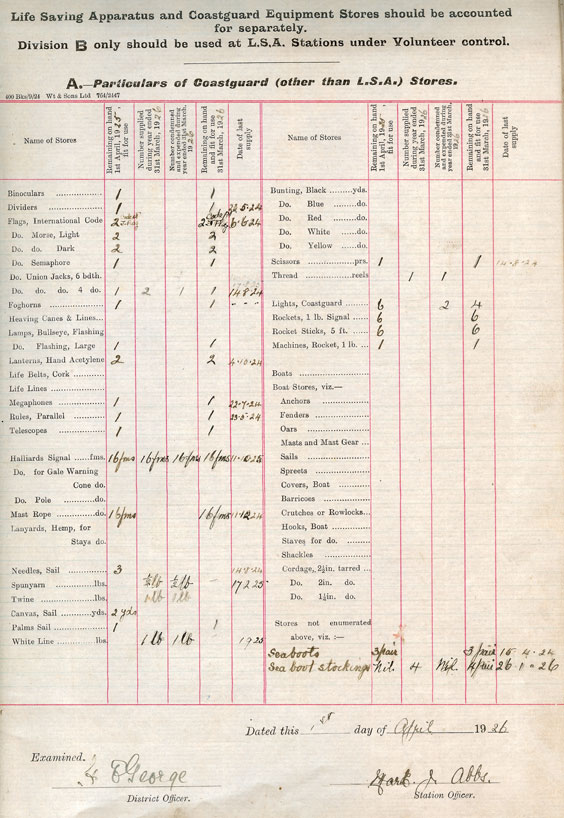 Life Saving Apparatus and Coastguard Equipment Stores should be accounted
for separately.
Division B only should be used at L.S.A. Stations under Volunteer control.
A.—Particulars of Coastguard (other than L.S.A.) Stores.
400 Bks/9/24 Wt & Sons Ltd 764/2447
Name of Stores
Remaining on hand 1st April, 1925, fit for use
Number supplied during year ended 31st March, 1926
Number condemned and expended during year ended 31st March, 1926
Remaining on hand and fit for use 31st March, 1926
Date of last supply
Binoculars 1 1
Dividers 1 1 22.5.24
Flags, International Code 2 2 6.6.24
Do. Morse, Light 2 2
Do. do. Dark 2 2
Do. Semaphore 1 1
Do. Union Jacks, 6 bdth.
Do. do. do. 4 do. 1 2 1 1 14.8.24
Foghorns 1 1 - - -
Heaving Canes & Lines...
Lamps, Bullseye, Flashing
Do. Flashing, Large 1 1
Lanterns, Hand Acetylene 2 2 4.10.24
Life Belts, Cork
Life Lines
Megaphones 1 1 22.7.24
Rules, Parallel 1 1 23.5.24
Telescopes 1 1
Halliards Signal ......fms. 16 fms 16 fms 16 fms 16 fms 11.10.25
Do. for Gale Warning
Cone do.
Do. Pole ............do.
Mast Rope ...............do. 16 fms 16 fms 11.12.24
Lanyards, Hemp, for
Stays do.
Needles, Sail 3 14.8.24
Spunyarn ............lbs. ½ lb ½ lb - 17.2.25
Twine ..................lbs. 1 lb
Canvas, Sail ............yds. 2 yds
Palms Sail 1 1
White Line ............ lbs. 1 lb 1 lb 1925
Name of Stores
Remaining on hand 1st April, 1925, fit for use
Number supplied during year ended 31st March, 1926
Number condemned and expended during year ended 31st March, 1926
Remaining on hand and fit for use 31st March, 1926
Date of last supply
Bunting, Black .........yds.
Do. Blue .........do.
Do. Red .........do.
Do. White ......do.
Do. Yellow ......do.
Scissors ..................prs. 1 1 14.8.24
Thread ..................reels 1 1
Lights, Coastguard 6 2 4
Rockets, 1 lb. Signal 6 6
Rocket Sticks, 5 ft. 6 6
Machines, Rocket, 1 lb. ... 1 1
Boats
Boat Stores, viz.—
Anchors
Fenders
Oars
Masts and Mast Gear ...
Sails
Spreets
Covers, Boat
Barricoes
Crutches or Rowlocks...
Hooks, Boat
Staves for do.
Shackles
Cordage, 2½in. tarred ...
Do. 2in. do.
Do. 1½in. do.
Stores not enumerated
above, viz. :—
Seaboots 3 pair 3 pair 15.4.24
Sea boot stockings Nil. 4 Nil. 4 pair 26.1.26
Dated this 1st day of April 1926
Examined.
George
District Officer.
J. Abbs.
Station Officer.